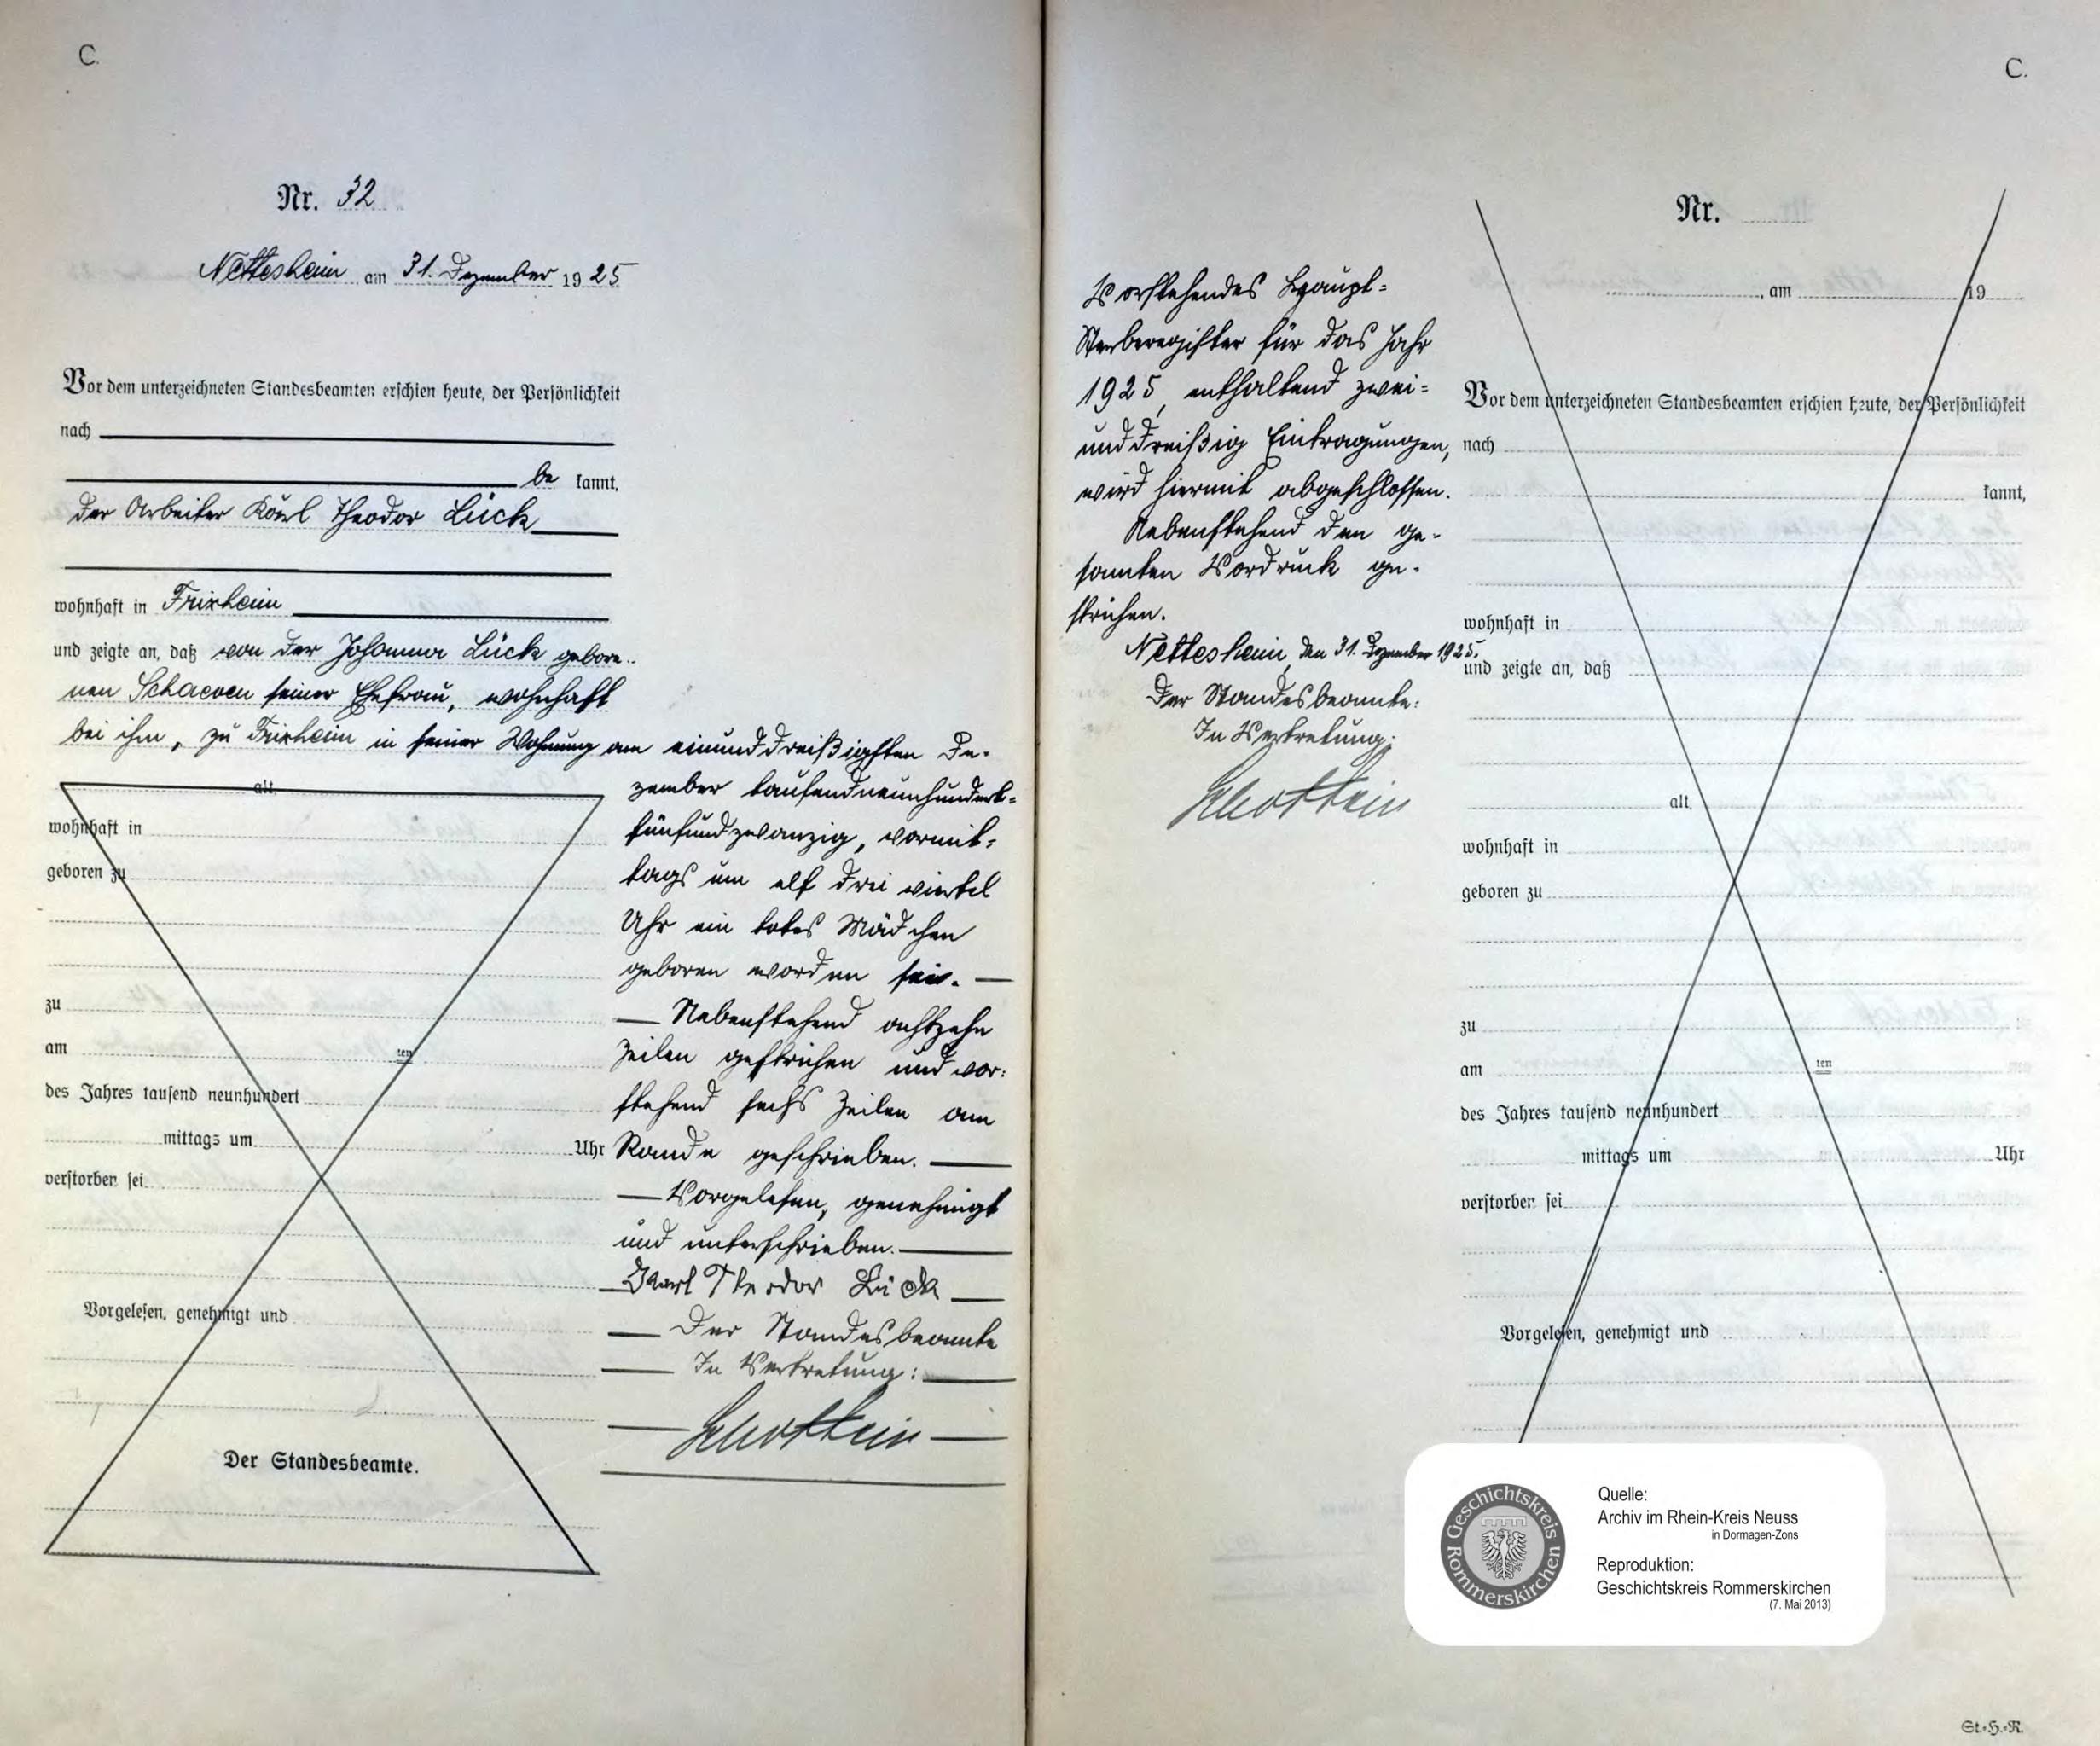 C.
Nr. 32
Nettesheim am 31. Dezember 1925
Vor dem unterzeichneten Standesbeamten erschien heute, der Persönlichkeit
nach
be kannt,
der Arbeiter Karl Theodor Lück
wohnhaft in Frixheim
und zeigte an, daß von der Johanna Lück gebore-
nen Schaeven seiner Ehefrau, wohnhaft
bei ihm, zu Frixheim in seiner Wohnung am einunddreißigsten De-
zember tausendneunhundert-
fünfundzwanzig, vormit-
tags um elf drei viertel
Uhr ein totes Mädchen
geboren worden sei.
Nebenstehend achtzehn
Zeilen gestrichen und vor-
stehend sechs Zeilen am
Rande geschrieben.
Vorgelesen, genehmigt
und unterschrieben.
Karl Theodor Lück
Der Standesbeamte
In Vertretung:
alt,
wohnhaft in
geboren zu
zu
am ten
des Jahres tausend neunhundert
mittags um Uhr
verstorben sei
Vorgelesen, genehmigt und
Der Standesbeamte.
C.
Vorstehendes Haupt-
Sterberegister für das Jahr
1925, enthaltend zwei-
unddreißig Eintragungen,
wird hiermit abgeschlossen.
Nebenstehend den ge-
samten Vordruck ge-
strichen.
Nettesheim, den 31. Dezember 1925.
Der Standesbeamte:
In Vertretung:
Nr.
, am 19
Vor dem unterzeichneten Standesbeamten erschien heute, der Persönlichkeit
nach
kannt,
wohnhaft in
und zeigte an, daß
alt,
wohnhaft in
geboren zu
zu
am ten
des Jahres tausend neunhundert
mittags um Uhr
verstorben sei
Vorgelesen, genehmigt und
Geschichtskreis Rommerskirchen
Quelle:
Archiv im Rhein-Kreis Neuss
in Dormagen-Zons
Reproduktion:
Geschichtskreis Rommerskirchen
(7. Mai 2013)
St.-H.-R.